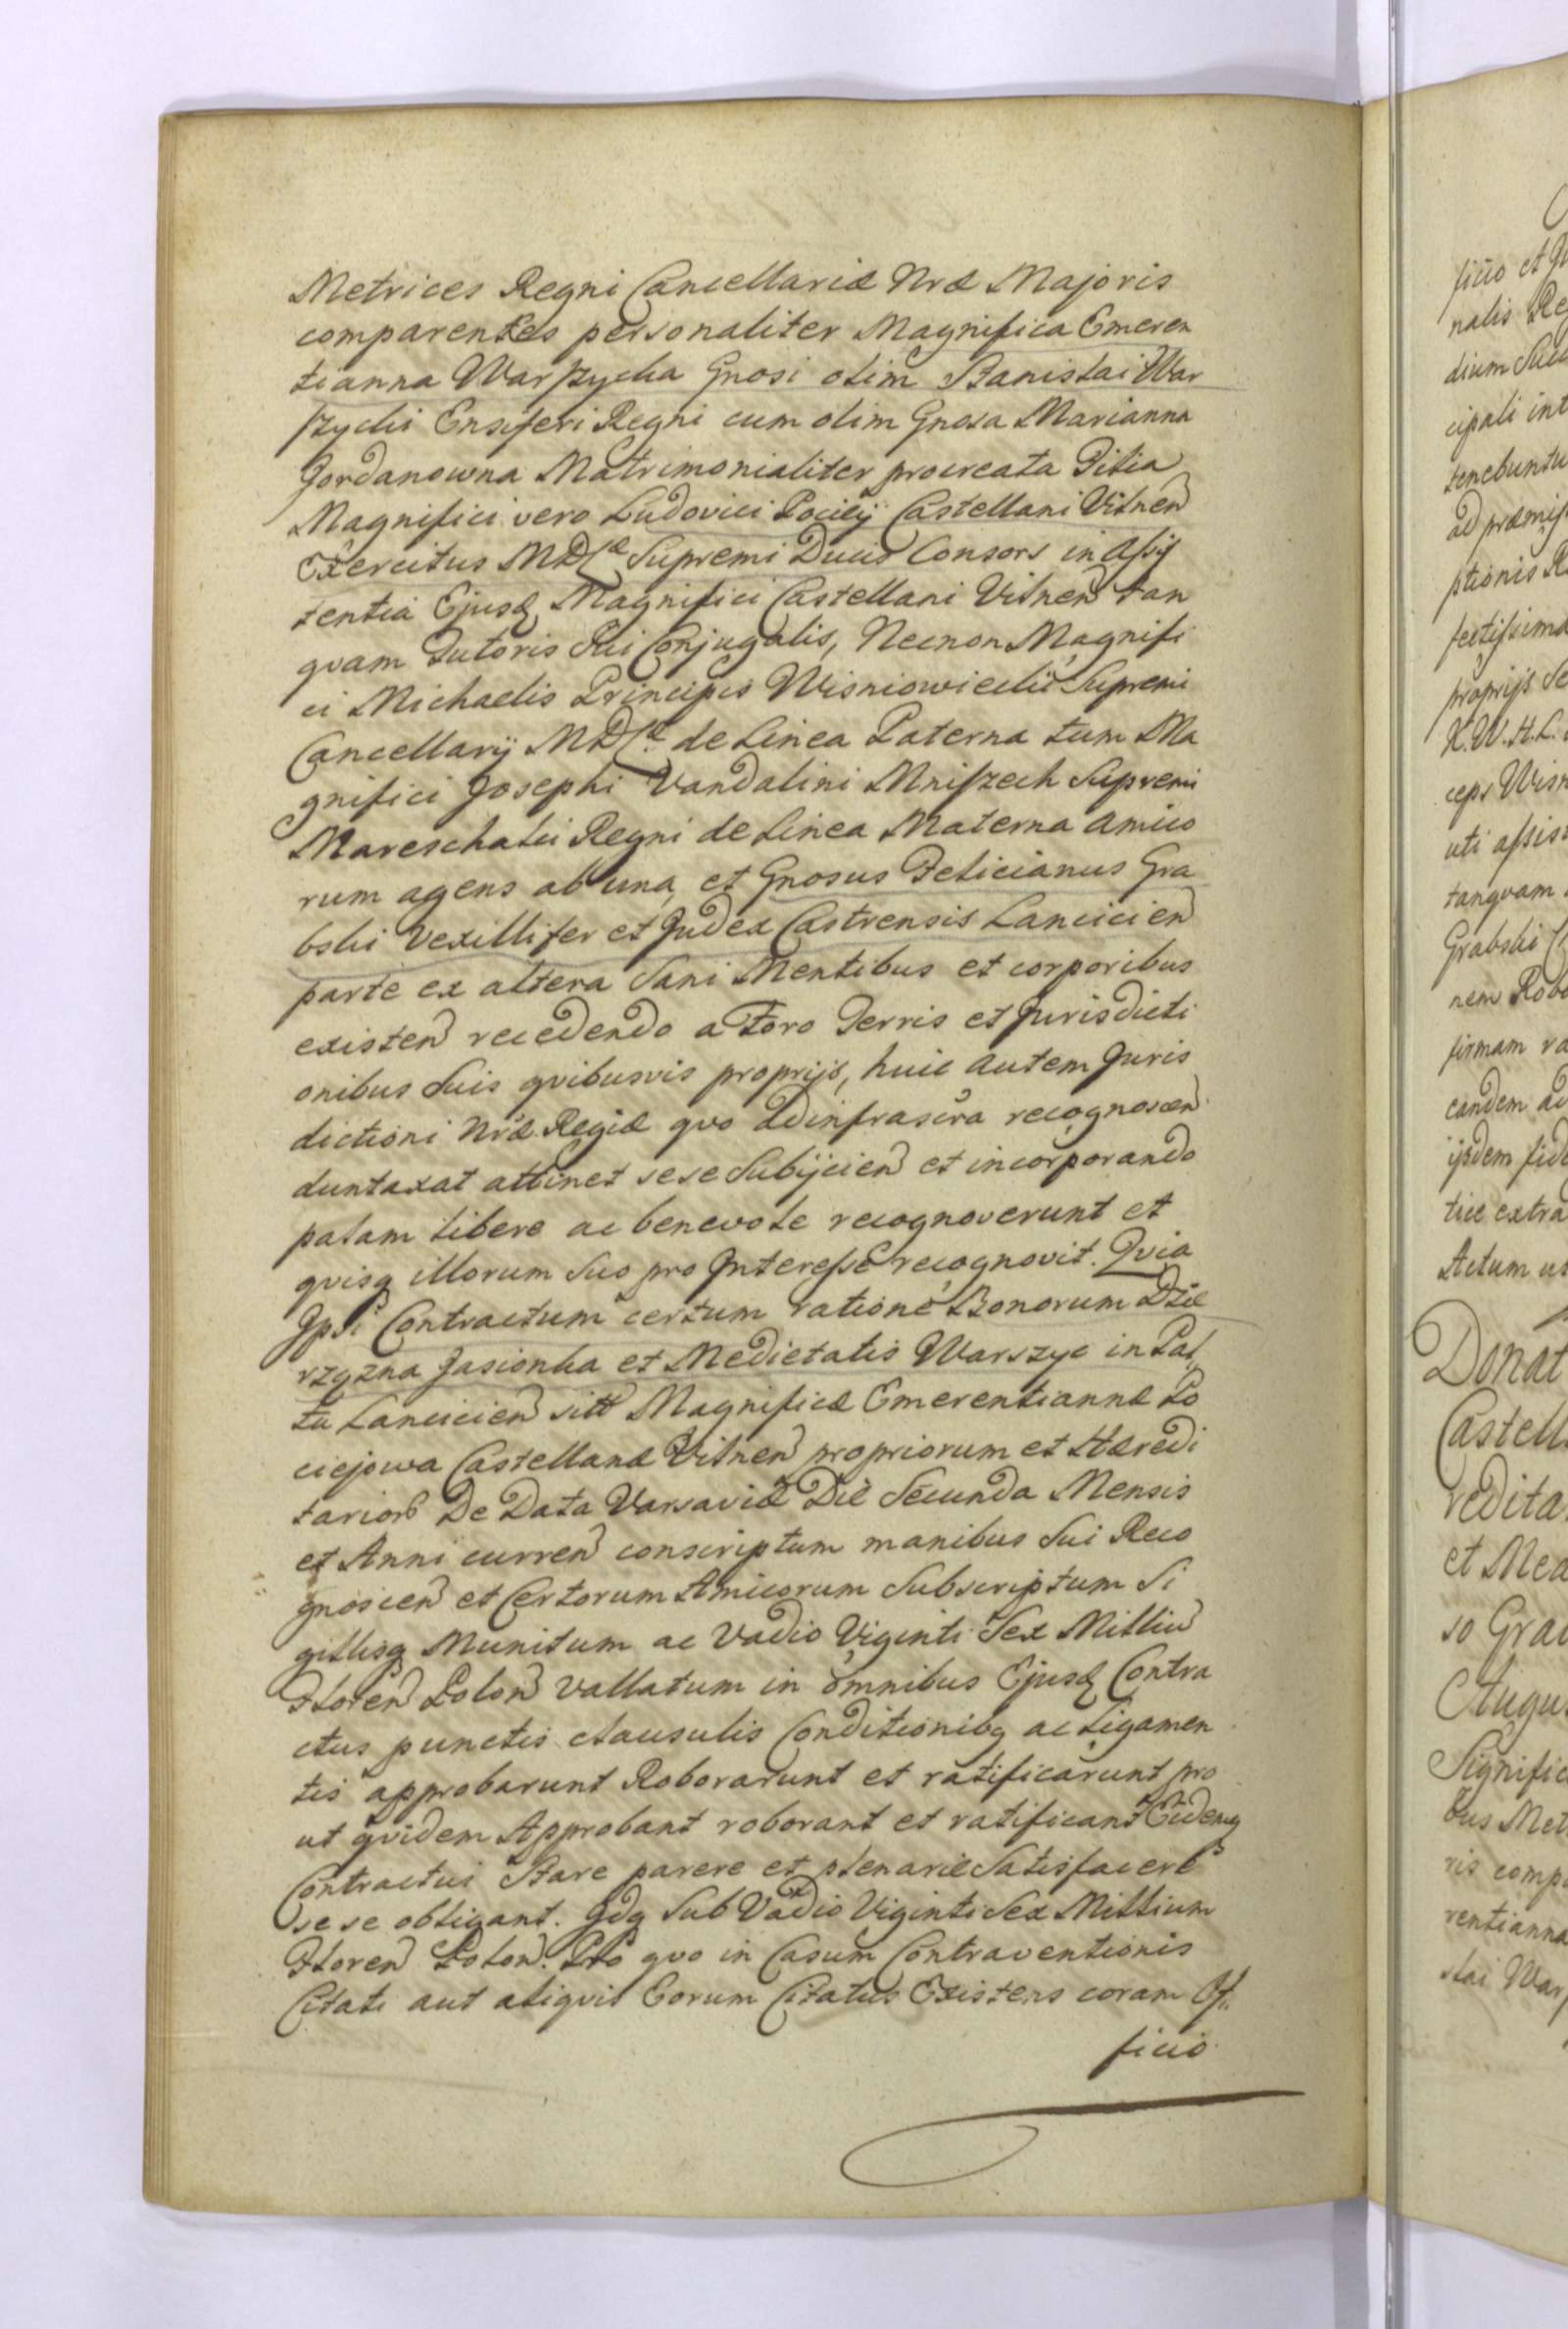 Metrices Regni Cancellariæ Nræ Majoris
comparentes personaliter Magnifica Emeren
tianna Warszycka Gnosi olim Stanislai War
szycki Ensiferi Regni cum olim Gnosa Marianna
Jordanowna Matrimonialiter procreata Filia
Magnifici vero Ludovici Pociey Castellani Vilnen
Exercitus MDLæ Supremi Ducis Consors in Assis
tentia Ejusd Magnifici Castellani Vilnen tan
qvam Tutoris Sui Conjugalis, Necnon Magnifi
ci Michaelis Principis Wisniowiecki Supremi
Cancellarij MDLæ de Linea Paterna tum Ma
gnifici Josephi Vandalini Mniszech Supremi
Mareschalci Regni de Linea Materna amico
rum agens ab una, et Gnosus Felicianus Gra
bski Vexillifer et Judex Castrensis Lancicien
parte ex altera Sani Mentibus et corporibus
existen recedendo a Foro Terris et Jurisdicti
onibus Suis qvibusvis proprijs, huic autem Juris
dictioni Nræ Regiæ qvo ad infrascra recognoscen
duntaxat attinet sese Subijcien et incorporando
palam libere ac benevole recognoverunt et
qvisq illorum Suo pro Interesse recognovit. Qvia
Ipsi Contractum certum ratione Bonorum Dzie
rzązna Jasionka et Medietatis Warszyc in Pal
tu Lancicien sitt Magnificæ Emerentiannæ Po
ciejowa Castellanæ Vilnen propriorum et Hæredi
tarior De Data Varsaviæ Die Secunda Mensis
et Anni curren conscriptum manibus Sui Reco
gnoscen et Certorum Amicorum Subscriptum Si
gillisq Munitum ac Vadio Viginti Sex Milliu
Floren Polon vallatum in omnibus Ejusd Contra
ctus punctis clausulis Conditionibq ac Ligamen
tis approbarunt Roborarunt et ratificarunt pro
ut qvidem Approbant roborant et ratificant Eidemq
Contractui Stare parere et plenarie Satisfacere
sese obligant. Idq Sub Vadio Viginti Sex Millium
Floren Polon. Pro qvo in Casum Contraventionis
Citati aut aliqvis Eorum Citatus Existens coram Of
ficio